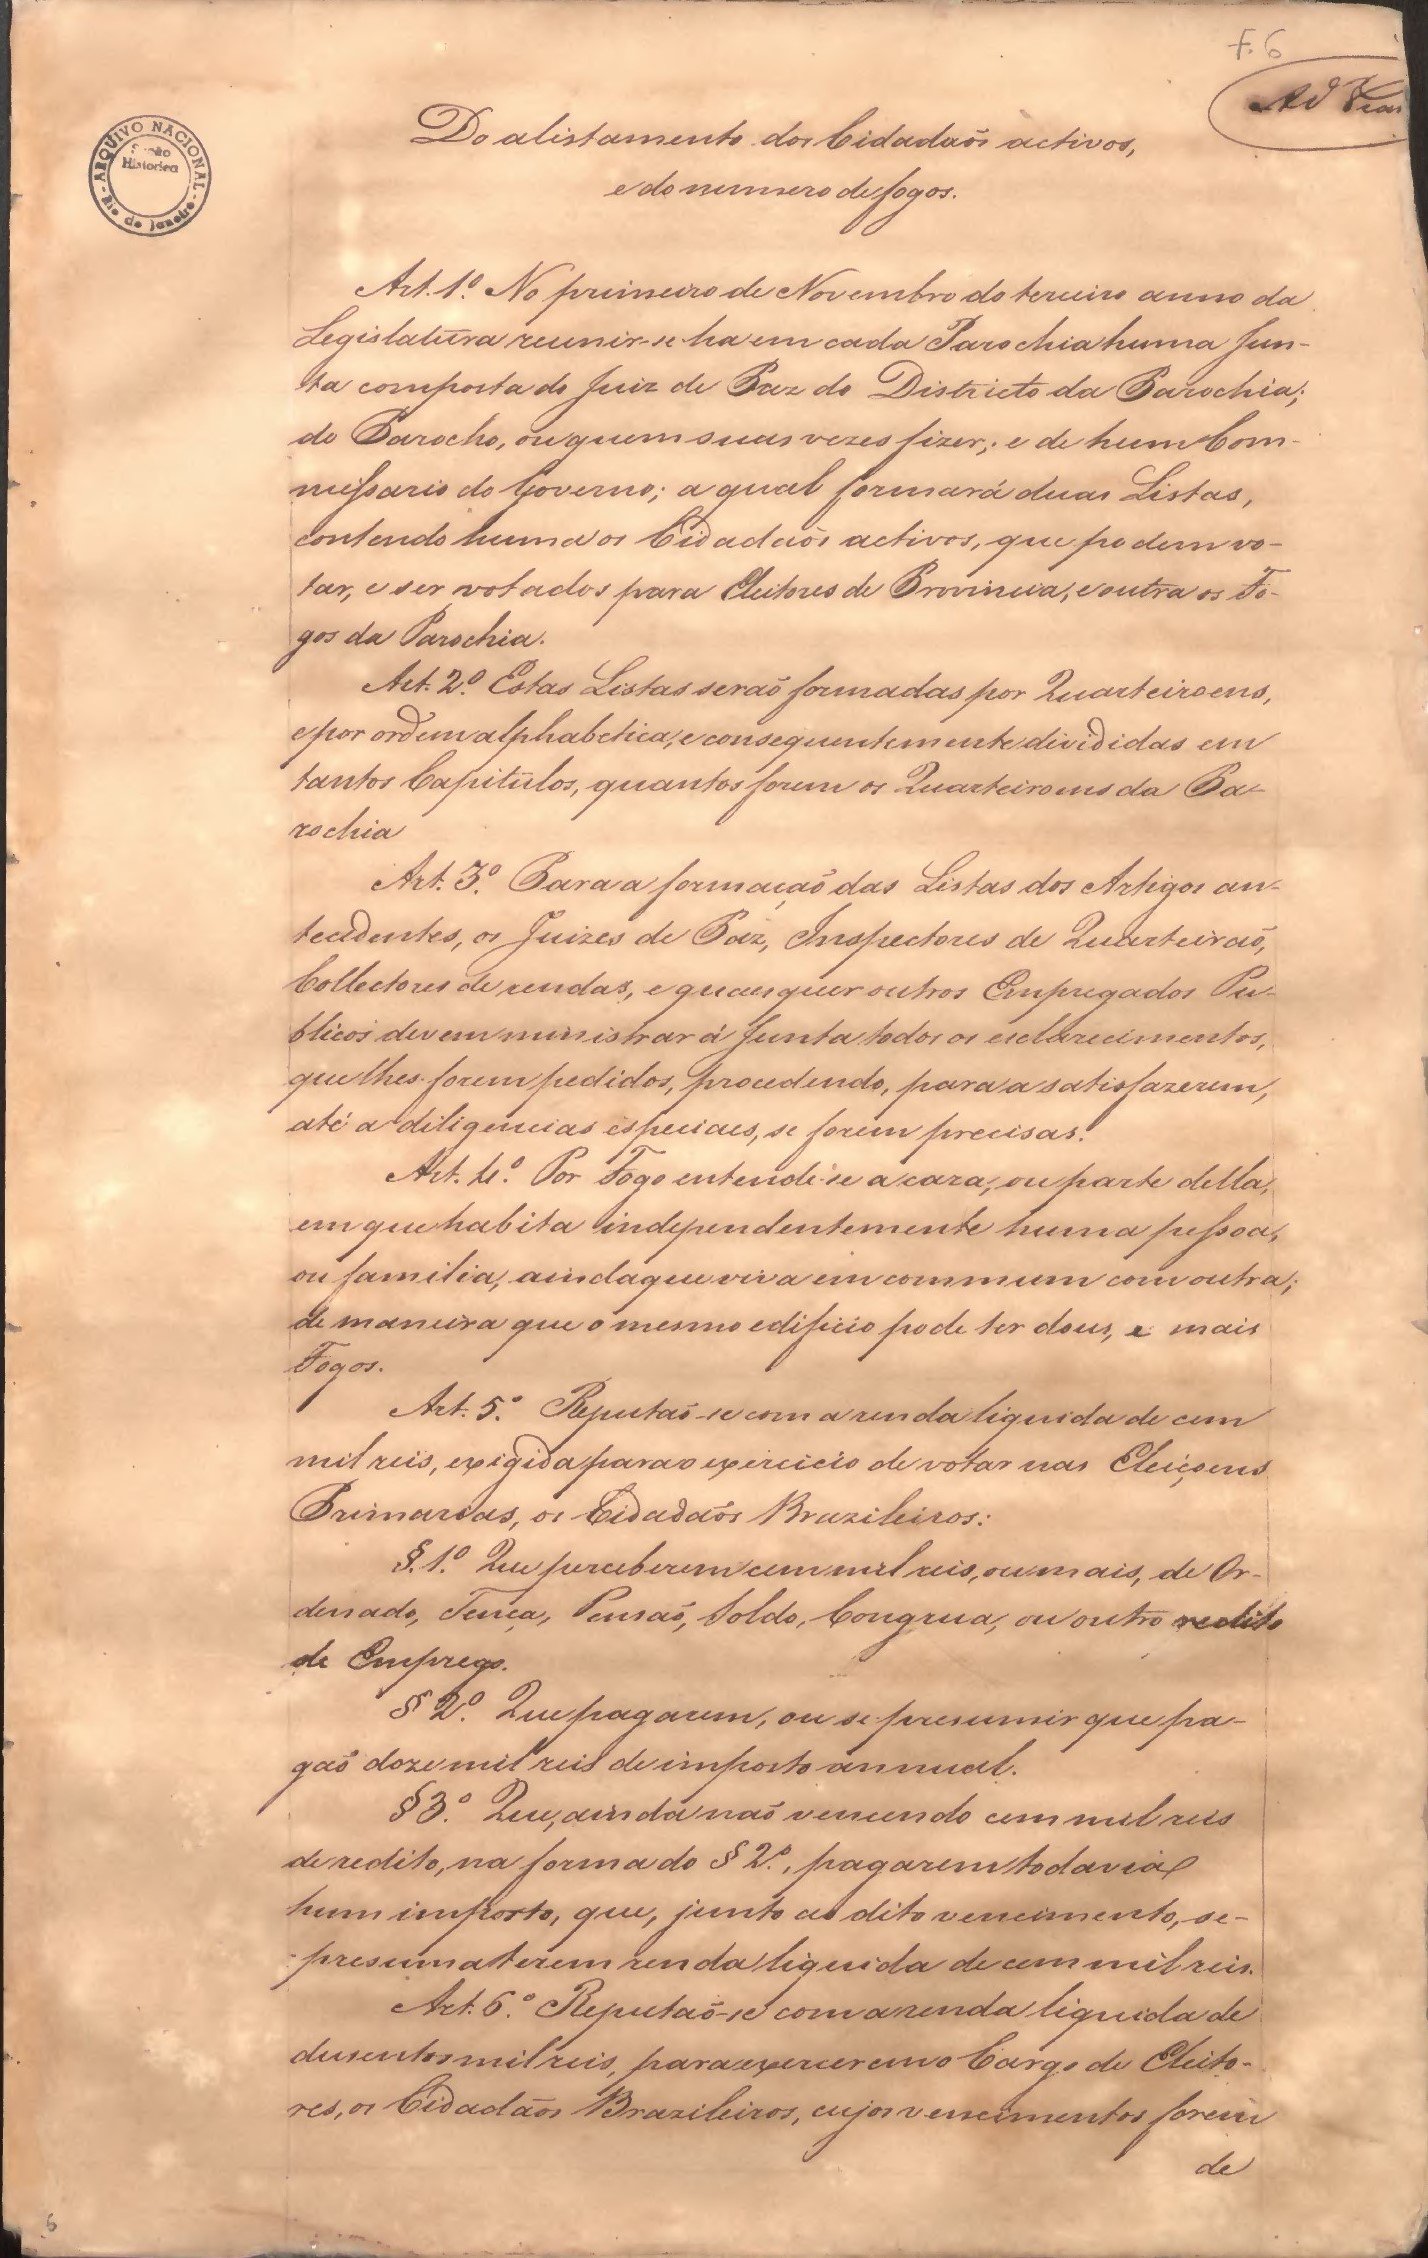 F. 6
Ad
ARQUIVO NACIONAL
Secção
Historica
Rio de Janeiro
Do alistamento dos Cidadaõs activos,
e do numero de fogos.
Art. 1.º No primeiro de Novembro do terceiro anno da
Legislatura reunir-se ha em cada Parochia huma Jun-
ta composta do Juiz de Paz do Districto da Parochia;
do Parocho, ou quem suas vezes fizer; e de hum Com-
missario do Governo; a qual formará duas Listas,
contendo huma os Cidadaõs activos, que podem vo-
tar, e ser votados para Eleitores de Provincia, e outra os Fo-
gos da Parochia.
Art. 2.º Estas Listas seraõ formadas por Quarteiroens,
e por ordem alphabetica, e consequentemente divididas em
tantos Capitulos, quantos forem os Quarteiroens da Pa-
rochia
Art. 3.º Para a formaçaõ das Listas dos Artigos an-
tecedentes, os Juizes de Paz, Inspectores de Quarteiraõ,
Collectores de rendas, e quaesquer outros Empregados Pu-
blicos devem ministrar á Junta todos os esclarecimentos,
que lhes forem pedidos, procedendo, para a satisfazerem,
até a diligencias especiaes, se forem precisas.
Art. 4.º Por Fogo entende-se a caza, ou parte della,
em que habita independentemente huma pessoa,
ou familia, ainda que viva em commum com outra;
de maneira que o mesmo edificio pode ter dous, e mais
Fogos.
Art. 5.º Reputaõ-se com a renda liquida de cem
mil reis, exigida para o exercicio de votar nas Eleiçoens
Primarias, os Cidadaõs Brazileiros:
§. 1.º Que perceberem cem mil reis, ou mais, de Or-
denado, Tença, Pensaõ, Soldo, Congrua, ou outro redito
de Emprego.
§ 2.º Que pagarem, ou se presumir que pa-
gaõ doze mil reis de imposto annual.
§ 3.º Que, ainda naõ vencendo cem mil reis
de redito, na forma do § 2.º, pagarem todavia
hum imposto, que, junto ao dito vencimento, se-
presuma terem renda liquida de cem mil reis.
Art. 6.º Reputaõ-se com a renda liquida de
dusentos mil reis, para exercerem o Cargo de Eleito-
res, os Cidadãos Brazileiros, cujos vencimentos forem
de
6